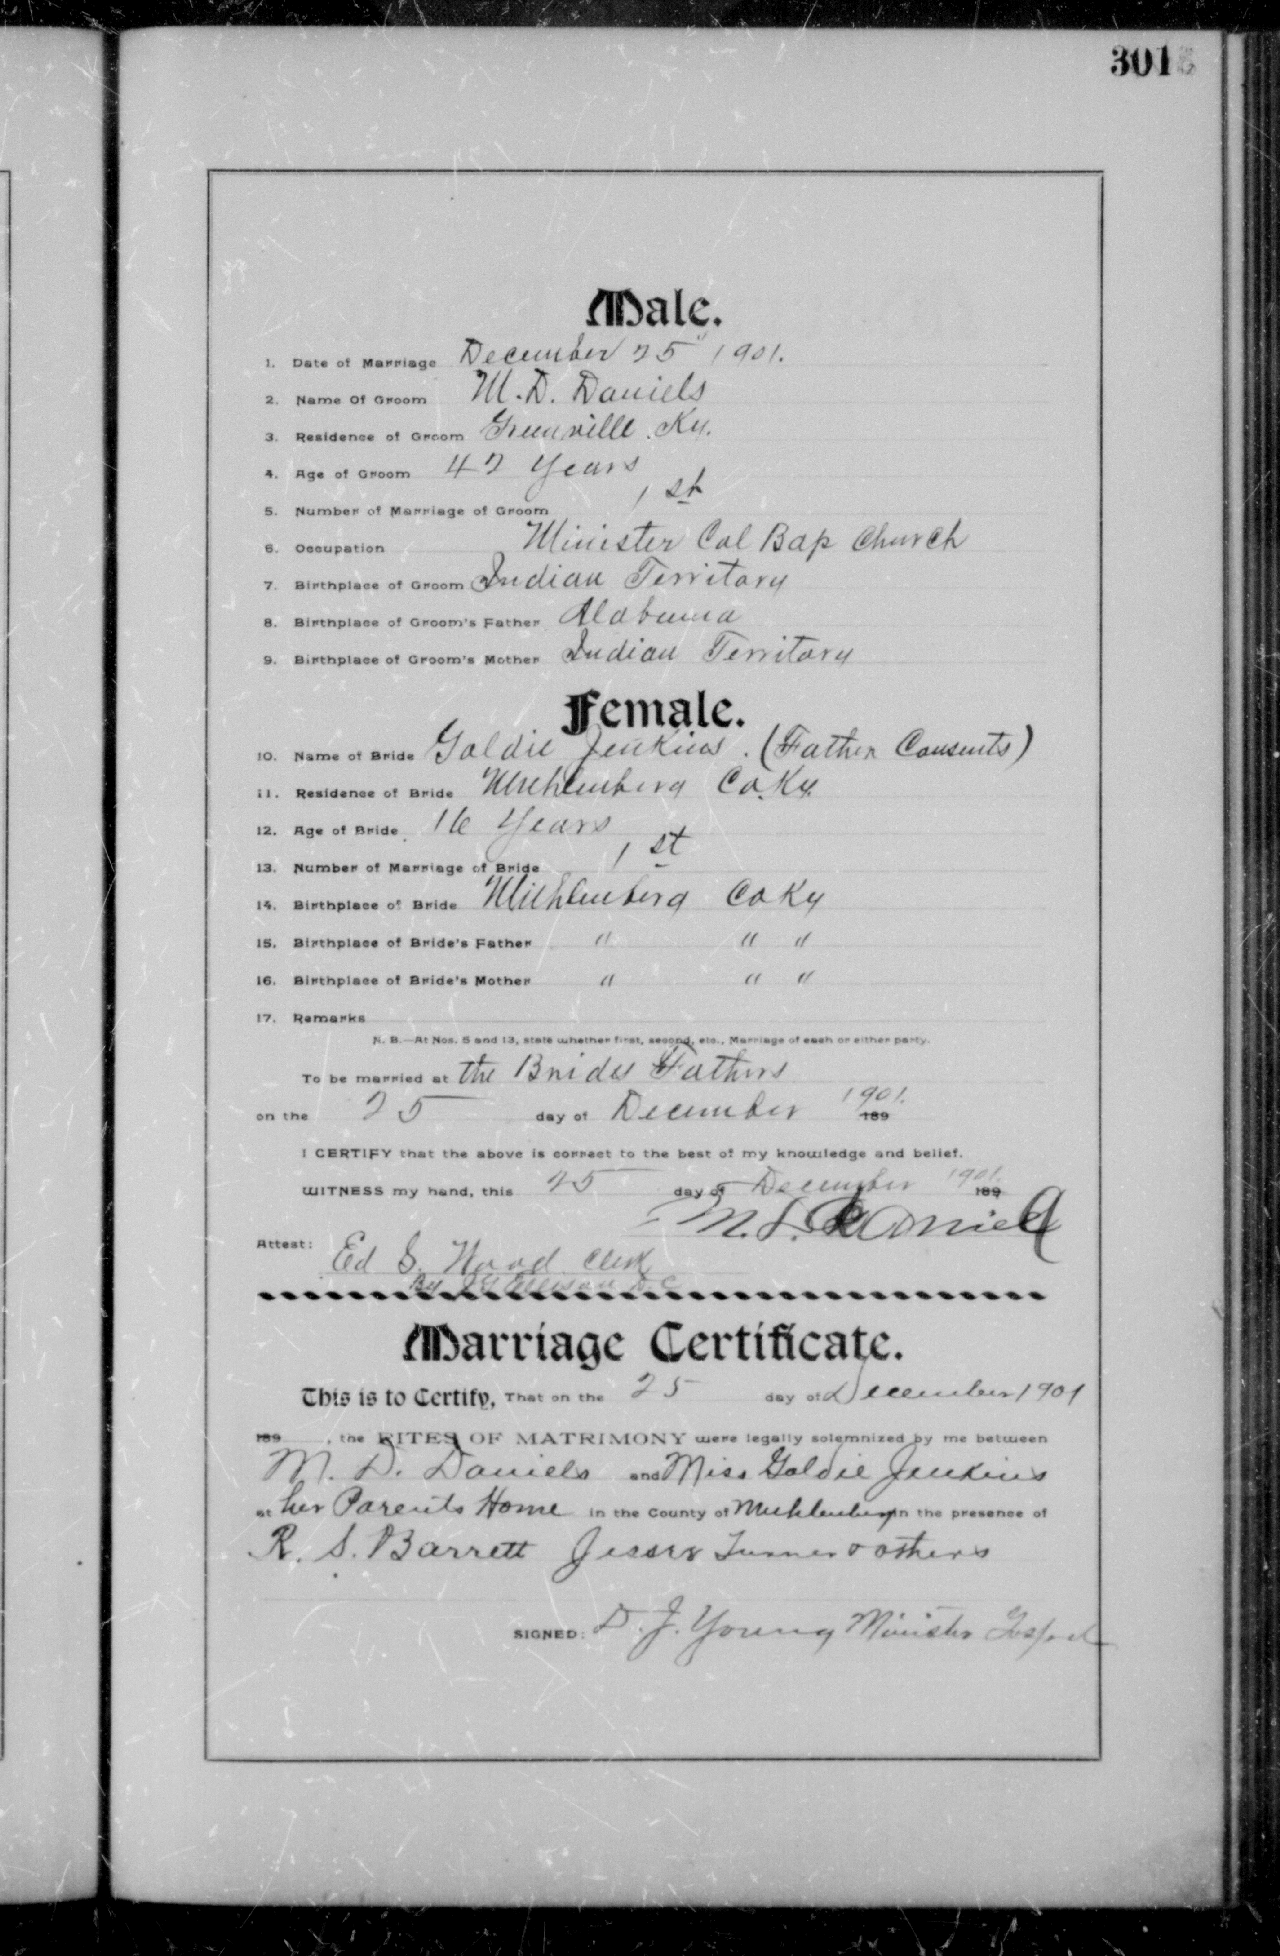 301
Male.
1. Date of Marriage December 25" 1901.
2. Name Of Groom M. D. Daniels
3. Residence of Groom Greenville. Ky.
4. Age of Groom 42 years
5. Number of Marriage of Groom 1st
6. Occupation Minister Col Bap Church
7. Birthplace of Groom Indian Territory
8. Birthplace of Groom's Father Alabama
9. Birthplace of Groom's Mother Indian Territory
Female.
10. Name of Bride Goldie Jenkins. (Father Consents)
11. Residence of Bride Muhlenberg Co. Ky.
12. Age of Bride 16 Years
13. Number of Marriage of Bride 1st
14. Birthplace of Bride Muhlenberg Co Ky
15. Birthplace of Bride's Father " " "
16. Birthplace of Bride's Mother " " "
17. Remarks
N. B.—At Nos. 5 and 13, state whether first, second, etc., Marriage of each or either party.
To be married at the Brides Fathers
on the 25 day of December 1901. 189
I CERTIFY that the above is correct to the best of my knowledge and belief.
WITNESS my hand, this 25 day of December 1901. 189
Attest: Ed S. Wood Clerk
By D.C.
Marriage Certificate.
This is to Certify, That on the 25 day of December 1901
189 , the RITES OF MATRIMONY were legally solemnized by me between
M. D. Daniels and Miss Goldie Jenkins
at her Parents Home in the County of Muhlenberg in the presence of
R. S. Barrett Jesse Turner & others
SIGNED: D. J. Young Minister Gospel